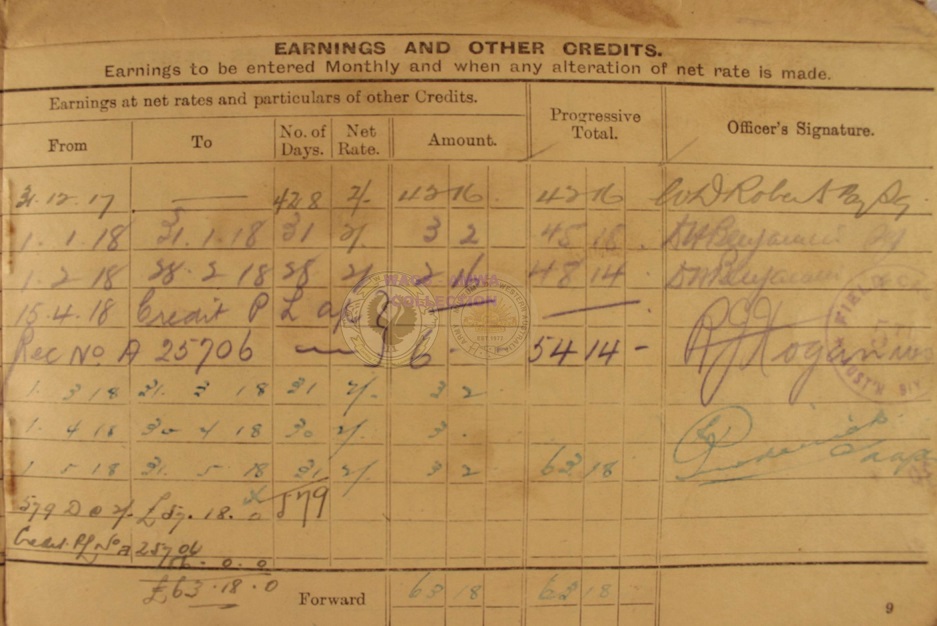 EARNINGS AND OTHER CREDITS.
Earnings to be entered Monthly and when any alteration of net rate is made.
Earnings at net rates and particulars of other Credits. Progressive Total. Officer's Signature.
From To No. of Days. Net Rate. Amount.
31.12.17 — 428 2/. 42 16 42 16 Roberts
1.1.18 31.1.18 31 2/. 3 2 45 18 Benjamin
1.2.18 28.2.18 28 2/. 2 16 48 14 Benjamin
15.4.18 Credit P L — —
Rec No A 25706 — 6 - - 54 14 - Hogan
1 3 18 31. 3 18 31 2/. 3 2
1 4 18 30 4 18 30 2/. 3 .
1 5 18 31. 5 18 31 2/. 3 2 63 18
579
579 D @ 2/. £57.18.0
Credit No A 25706
0.0
£63.18.0
Forward 63 18 63 18
9
WAGGA WAGGA COLLECTION
FIEL
AUST'N